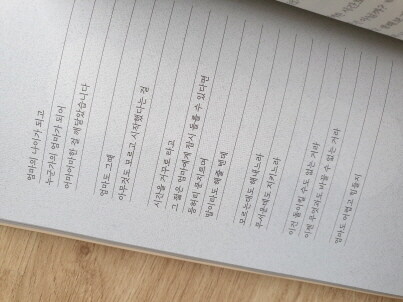 엄마의 나이가 되고
누군가의 엄마가 되어
어마어마한 걸 깨달았습니다
엄마도 그때
아무것도 모르고 시작했다는 걸
시간을 거꾸로 타고
그 젊은 엄마에게 잠시 들를 수 있다면
등허리 문지르며
말이라도 해줄 텐데
모르는데도 해내느라
무서운데도 지키느라
이건 돌이킬 수도 없는 거라
이젠 무엇과도 바꿀 수 없는 거라
엄마도 어렵고 힘들지